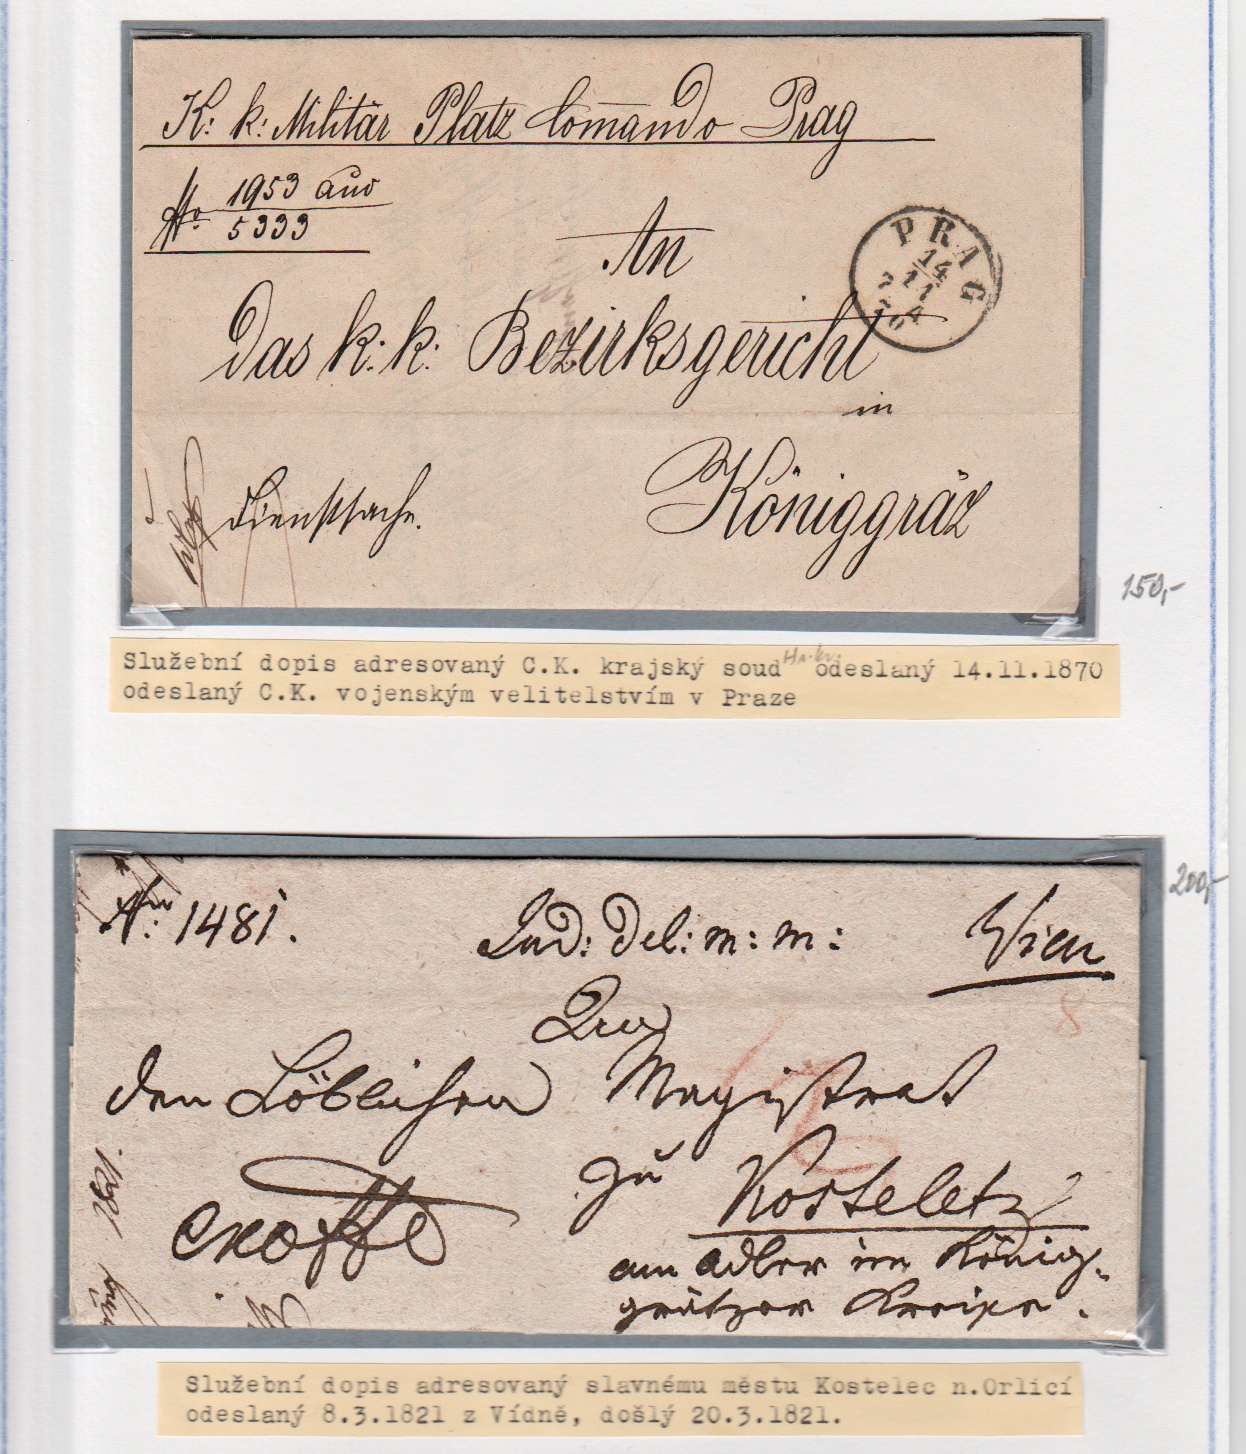 K: k: Militär Platz Comando Prag
No. 1953 aus
5333
An
PRAG
14
11
70
Das k: k: Bezirksgericht
in
Königgräz
Dienstsache.
150,-
Služební dopis adresovaný C.K. krajský soud Hr.kr. odeslaný 14.11.1870
odeslaný C.K. vojenským velitelstvím v Praze
200,-
No: 1481. Jud: Del: m: m: Wien
8
An
den Löblichen Magistrat
zu Kosteletz
ex offo
am Adler im König-
grätzer Kreise.
1821
Služební dopis adresovaný slavnému městu Kostelec n.Orlicí
odeslaný 8.3.1821 z Vídně, došlý 20.3.1821.